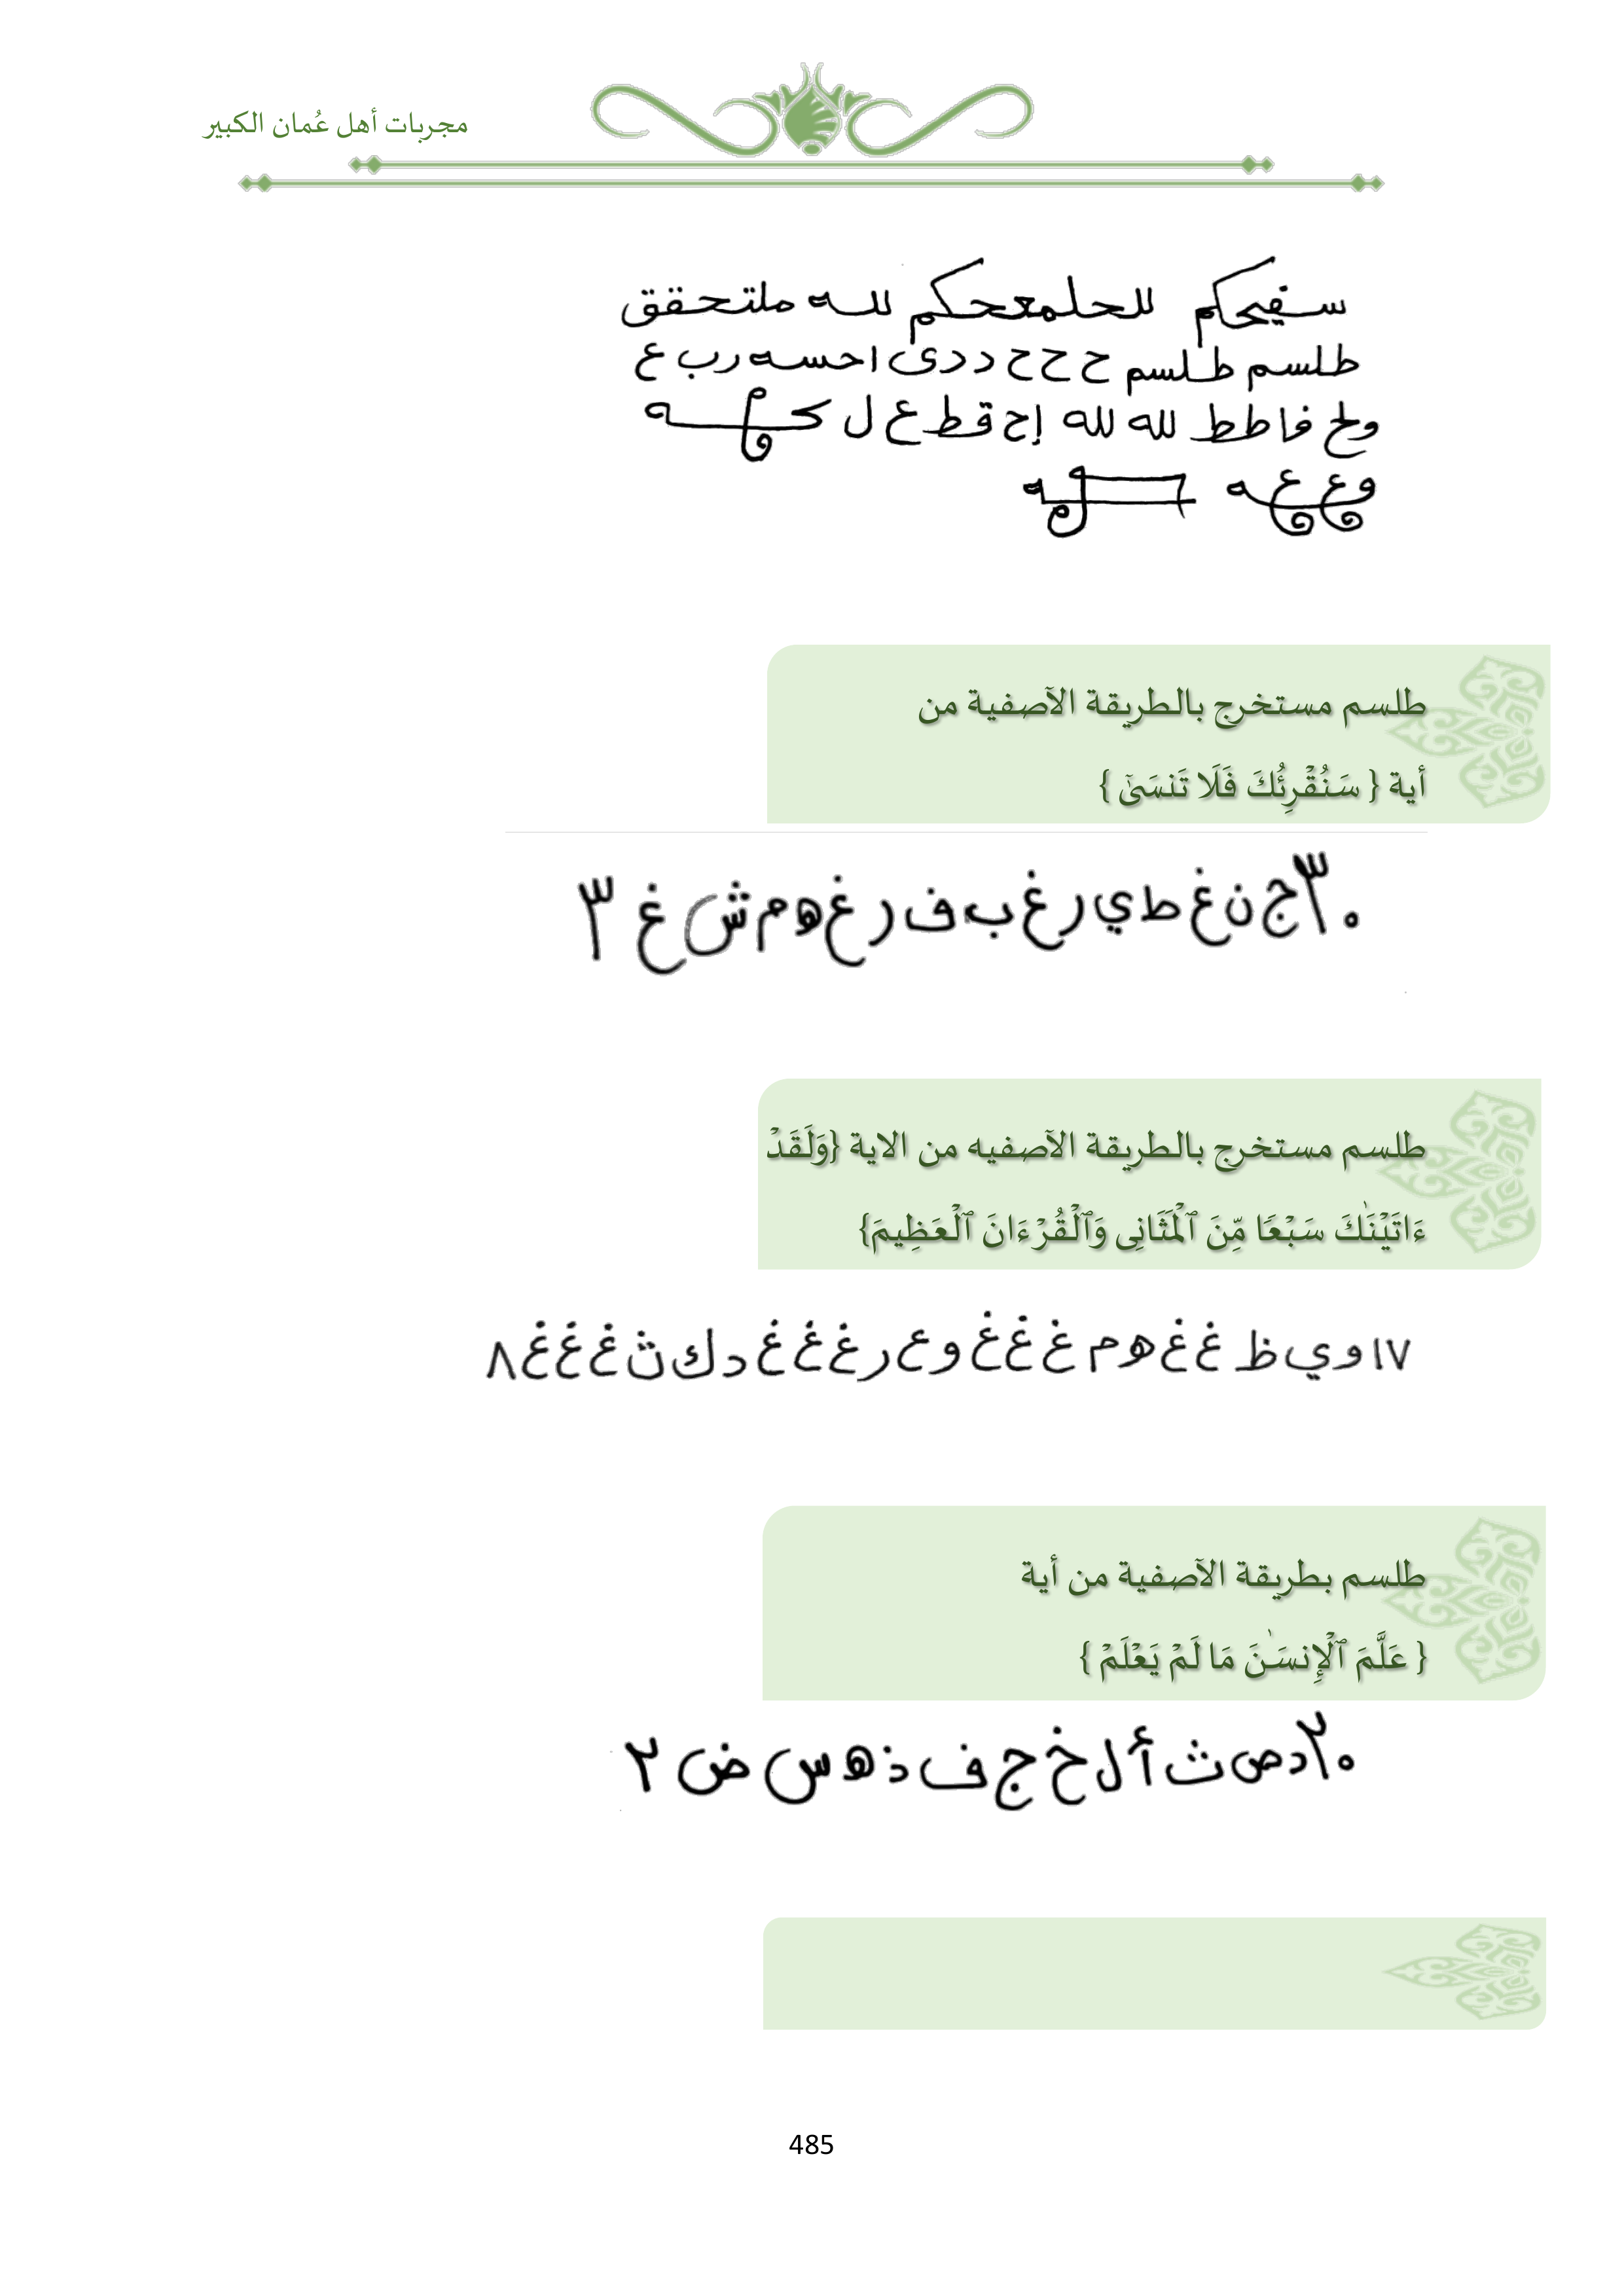 مجربات أهل عُمان الكبير
سفيحكم للحلمعحكم لله ملتحقق
طلسم طلسم ح ح ح د د ى احسه رب ع
ولح فاطط لله لله إح قطع ل
وععه
طلسم مستخرج بالطريقة الآصفية من
أية { سَنُقْرِئُكَ فَلَا تَنسَىٰٓ }
٠٣١ ج ن غ ط ي ر غ ب ف ر غ ه م ش غ ٣
طلسم مستخرج بالطريقة الآصفيه من الاية {وَلَقَدْ
ءَاتَيْنَٰكَ سَبْعًا مِّنَ ٱلْمَثَانِى وَٱلْقُرْءَانَ ٱلْعَظِيمَ}
١٧ و ي ظ غ غ ه م غ غ غ و ع ر غ غ غ د ك ث غ غ غ ٨
طلسم بطريقة الآصفية من أية
{ عَلَّمَ ٱلْإِنسَٰنَ مَا لَمْ يَعْلَمْ }
٠٢ د ص ث أ ل خ ج ف ذ ه س ض ٢
485